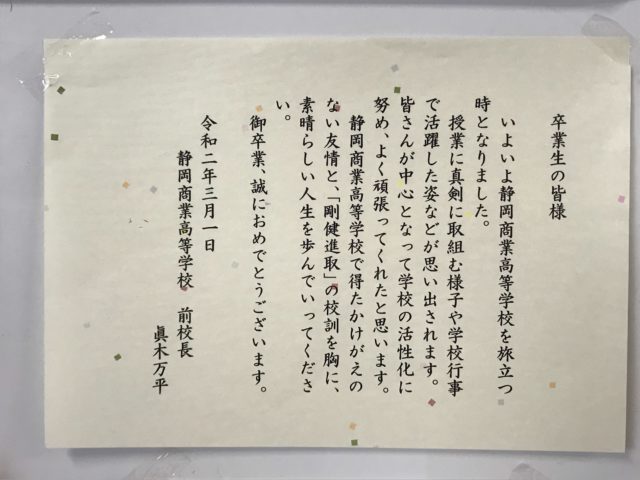 卒業生の皆様
いよいよ静岡商業高等学校を旅立つ
時となりました。
授業に真剣に取組む様子や学校行事
で活躍した姿などが思い出されます。
皆さんが中心となって学校の活性化に
努め、よく頑張ってくれたと思います。
静岡商業高等学校で得たかけがえの
ない友情と、「剛健進取」の校訓を胸に、
素晴らしい人生を歩んでいってくださ
い。
御卒業、誠におめでとうございます。
令和二年三月一日
静岡商業高等学校　前校長
眞木万平